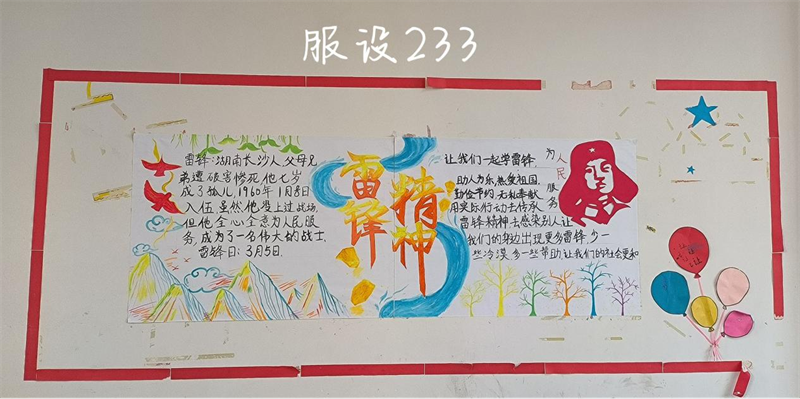 服设233
雷锋:湖南长沙人父母兄
弟遭破害惨死他七岁
成了孤儿,1960年1月8日
入伍虽然他没上过战场,
但他全心全意为人民服
务,成为了一名伟大的战士.
雷锋日:3月5日.
雷锋
精神
让我们一起学雷锋.
助人为乐,热爱祖国.
勤俭节约.无私奉献
用实际行动去传承
雷锋精神去感染别人让
我们的身边出现更多雷锋,少一
些冷漠多一些帮助,让我们的社会更和
为人民服务